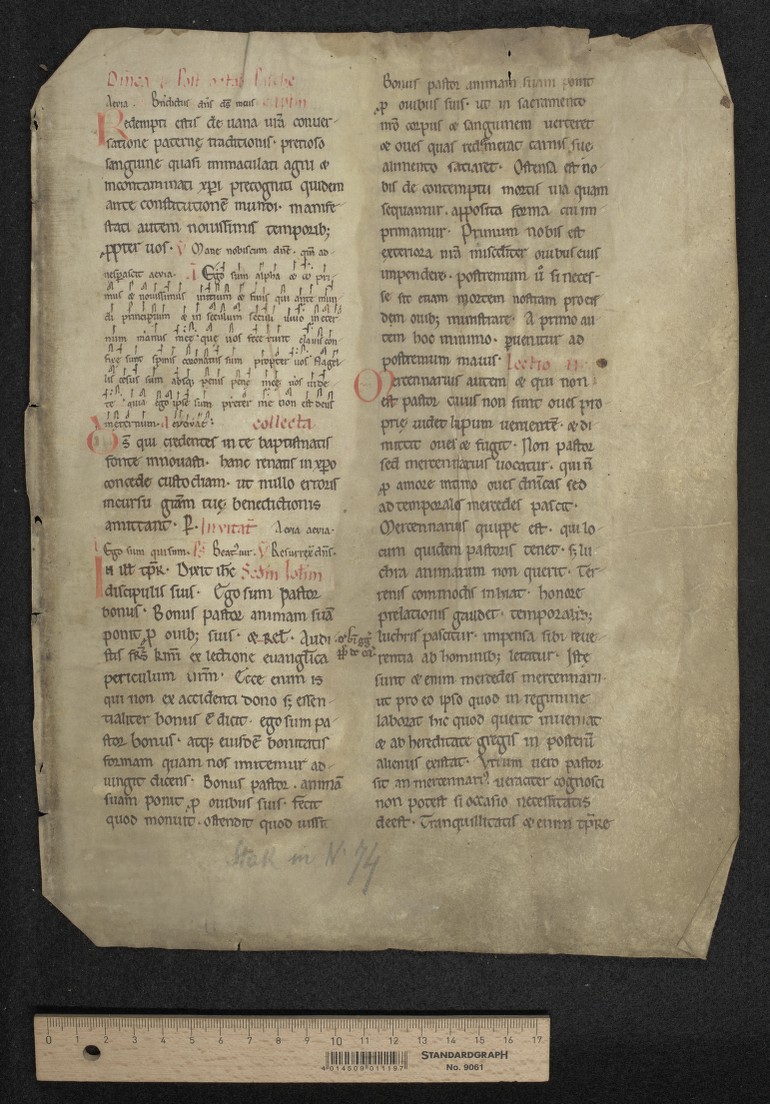 Aevia. Bñdictus dñs ds̄ meus
Redempti estis de uana ur̄a conuer-
satione paternę traditionis. precioso
sanguine quasi inmaculati agni &
incontaminati xp̄i precogniti quidem
ante constitutionē mundi. manife-
stati autem nouissimis temporib;
ꝓpter uos. V Mane nobiscum dn̄e. qm̄ ad-
uesperascit aevia. Ego sum alpha & ω pri-
mus & nouissimus initium & finis qui ante mun-
di principium & in seculum seculi uiuo in eter-
num manus meę que uos fecerunt clauis con-
fixę sunt spinis coronatus sum propter uos flagel-
lis cesus sum absq;
te quia ego ipse sum & preter me non est deus
ineternum. Aevovae: collecta
Ds̄ qui credentes in te baptismatis
fonte innouasti. hanc renatis in xp̄o
concede custodiam. ut nullo erroris
incursu grām tuę benedictionis
amittant. P. Inuitat̄ Aevia aevia.
Ego sum qui sum. Ps̄ Beat᷒ uir. V Resurrex̄ dn̄s.
In ill̄ tp̄r. Dixit ih̄c Scd̄m Ioh̄m
discipulis suis. Ego sum pastor
bonus. Bonus pastor animam suā
ponit ꝓ ouib; suis. & rel̄. Audi-
stis fr̄s km̄i ex lectione euangl̄ica
periculum ur̄m. Ecce enim is
qui non ex accidenti dono s; essen-
tialiter bonus ē dicit. ego sum pa-
stor bonus. atq; eiusdē bonitatis
formam quam nos imitemur ad-
iungit dicens. Bonus pastor. animā
suam ponit ꝓ ouibus suis. fecit
quod monuit. ostendit quod iussit
Stak in N. 74
Bonus pastor animam suam ponit
ꝓ ouibus suis. ut in sacramento
nr̄o corpus & sanguinem uerteret
& oues quas redemerat carnis suę
alimento satiaret. Ostensa est no-
bis de contemptu mortis uia quam
sequamur. apposita forma cui im-
primamur. Primum nobis est
exteriora nr̄a misericditer ouibus eius
impendere. postremum ū si neces-
se sit etiam mortem nostram pro eis-
dem ouib; ministrare. A primo au-
tem hoc minimo. ꝑuenitur ad
postremum maius. Lectio
Mercennarius autem & qui non
est pastor cuius non sunt oues pro-
prię uidet lupum uenientē. & di-
mittit oues & fugit. Non pastor
sed mercennarius uocatur. qui n̄
ꝓ amore intimo oues dn̄icas sed
ad temporales mercedes pascit.
Mercennarius quippe est. qui lo-
cum quidem pastoris tenet. s; lu-
chra animarum non querit. Ter-
renis commodis inhiat. honore
prelationis gaudet. temporalib;
luchris pascitur. impensa sibi reue-
rentia ab hominib; letatur. Istę
sunt & enim mercedes mercennarii
ut pro eo ipso quod in regimine
laborat hic quod querit inueniat
& ab hereditate gregis in posterū
alienus existat. Vtrum uero pastor
sit an mercennari᷒ ueraciter cognosci
non potest si occasio necessitatis
deest. Tranquillitatis & enim tp̄re
0 1 2 3 4 5 6 7 8 9 10 11 12 13 14 15 16 17
4 014509 011187
STANDARDGRAPH
No. 9061